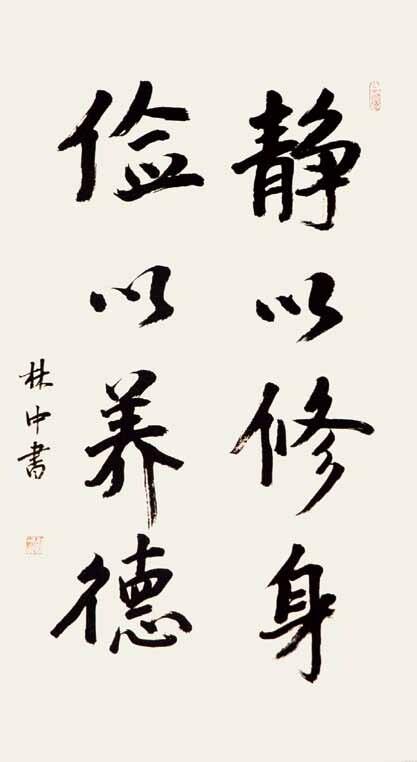 静以修身
俭以养德
林中書